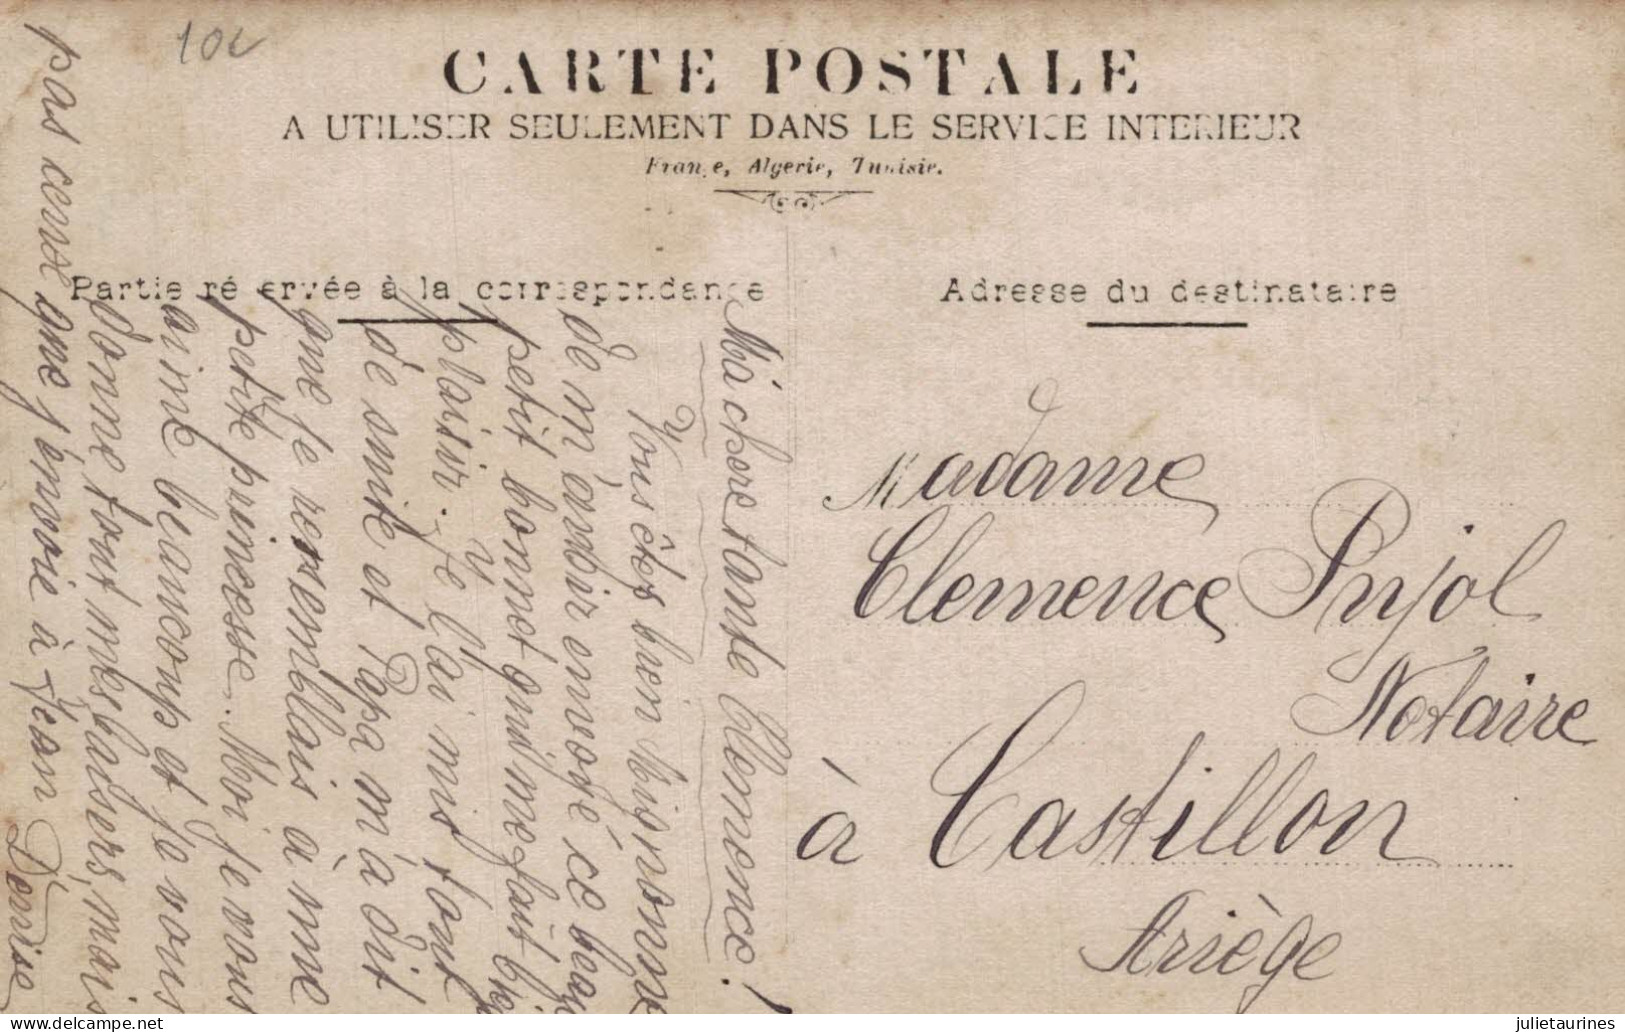 10c
CARTE POSTALE
A UTILISER SEULEMENT DANS LE SERVICE INTERIEUR
France, Algerie, Tunisie.
Partie réservée à la correspondance
Adresse du destinataire
Ma chere tante Clemence!
Vous êtes bien mignonne
de m'avoir envoyé ce beau
petit bonnet qui me fait bien
plaisir. Je l'ai mis tout
de suite et Papa m'a dit
que je ressemblais à une
petite princesse. Moi je vous
aime beaucoup et je vous
donne tout mes baisers, mais
pas ceux que j'envoie à Jean
Denise
Madame
Clemence Pujol
Notaire
à Castillon
Ariège
delcampe.net
julietaurines